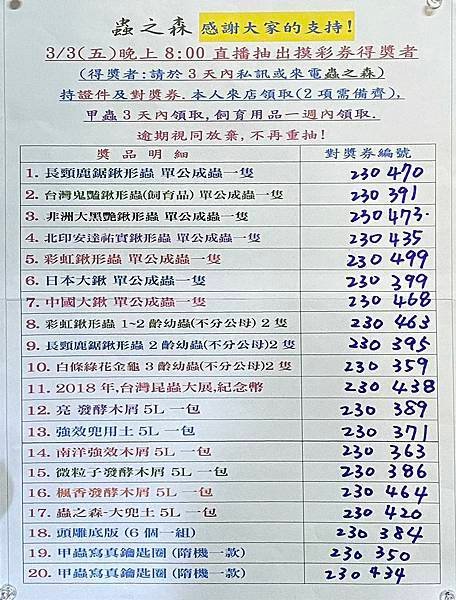 蟲之森 感謝大家的支持!
3/3(五)晚上 8:00 直播抽出摸彩券得獎者
(得獎者:請於 3 天內私訊或來電蟲之森)
持證件及對獎券.本人來店領取(2 項需備齊),
甲蟲 3 天內領取,飼育用品一週內領取.
逾期視同放棄,不再重抽!
獎品明細 對獎券編號
1. 長頸鹿鋸鍬形蟲 單公成蟲一隻 230 470
2. 台灣鬼豔鍬形蟲(飼育品) 單公成蟲一隻 230 391
3. 非洲大黑艷鍬形蟲 單公成蟲一隻 230 473.
4. 北印安達祐實鍬形蟲 單公成蟲一隻 230 435
5. 彩虹鍬形蟲 單公成蟲一隻 230 499
6. 日本大鍬 單公成蟲一隻 230 399
7. 中國大鍬 單公成蟲一隻 230 468
8. 彩虹鍬形蟲 1~2 齡幼蟲(不分公母) 2 隻 230 463
9. 長頸鹿鋸鍬形蟲 2 齡幼蟲(不分公母) 2 隻 230 395
10. 白條綠花金龜 3 齡幼蟲(不分公母)2 隻 230 359
11. 2018 年,台灣昆蟲大展,紀念幣 230 438
12. 亮 發酵木屑 5L 一包 230 389
13. 強效兜用土 5L 一包 230 371
14. 南洋強效木屑 5L 一包 230 363
15. 微粒子發酵木屑 5L 一包 230 386
16. 楓香發酵木屑 5L 一包 230 464
17. 蟲之森-大兜土 5L 一包 230 420
18. 頭雕底版 (6 個一組) 230 384
19. 甲蟲寫真鑰匙圈 (隨機一款) 230 350
20. 甲蟲寫真鑰匙圈 (隨機一款) 230 434